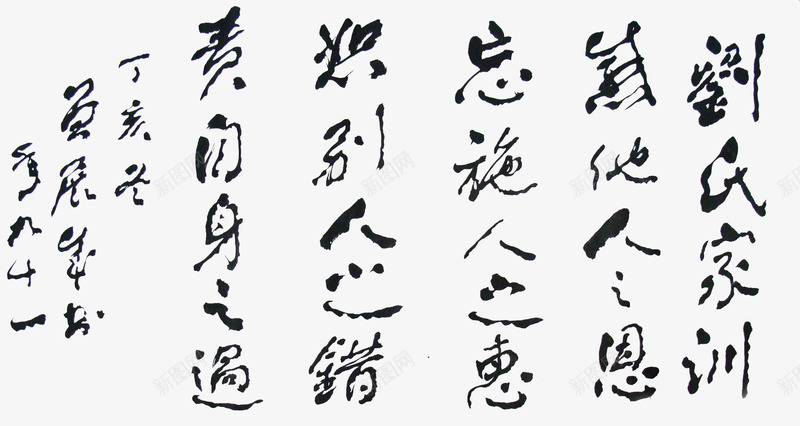 劉氏家訓
感他人之恩
忘施人之惠
恕别人之錯
責自身之過
丁亥冬
展
年九十一
新图网